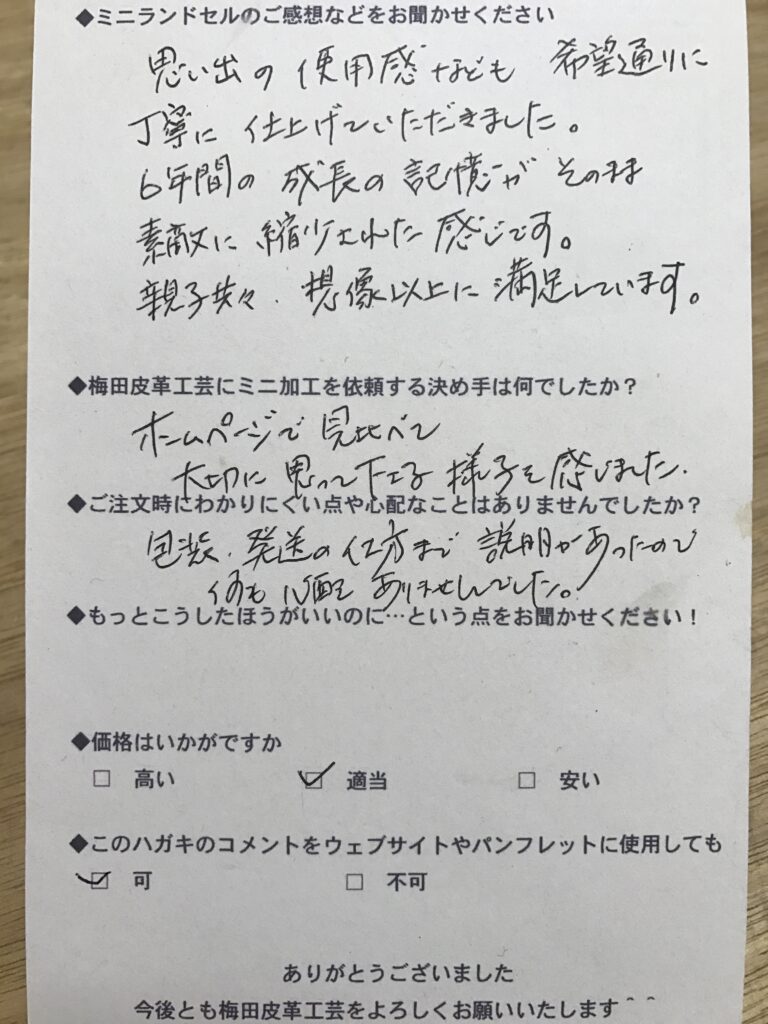 ◆ミニランドセルのご感想などをお聞かせください
思い出の使用感なども 希望通りに
丁寧に仕上げていただきました。
6年間の成長の記憶がそのまま
素敵に縮少された感じです。
親子共々、想像以上に満足しています。
◆梅田皮革工芸にミニ加工を依頼する決め手は何でしたか？
ホームページで見比べて
大切に思って下さる様子を感じました.
◆ご注文時にわかりにくい点や心配なことはありませんでしたか？
包装、発送の仕方まで説明があったので
何も心配ありませんでした。
◆もっとこうしたほうがいいのに…という点をお聞かせください！
◆価格はいかがですか
□ 高い ☑ 適当 □ 安い
◆このハガキのコメントをウェブサイトやパンフレットに使用しても
☑ 可 □ 不可
ありがとうございました
今後とも梅田皮革工芸をよろしくお願いいたします＾＾